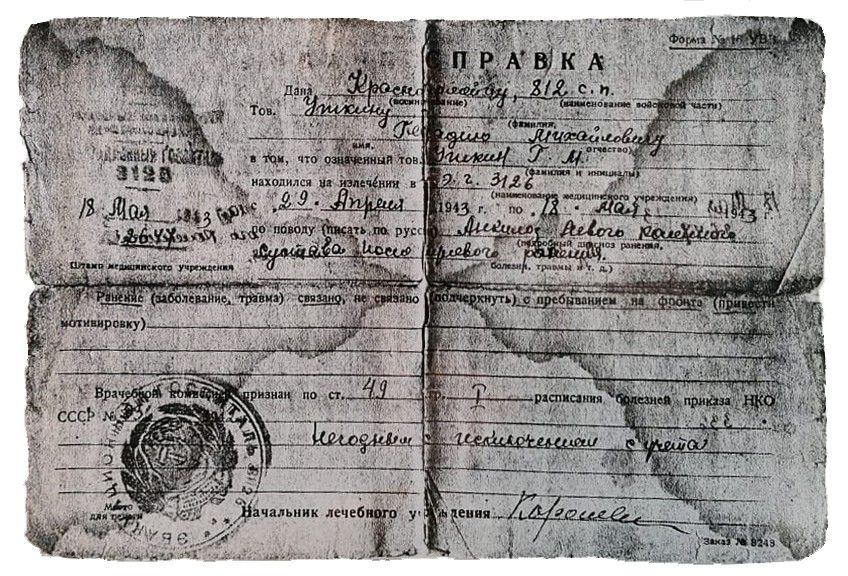 Форма № 16 УВЗ
СПРАВКА
Дана Красноармейцу, 812 с.п.
(воинское звание) (наименование войсковой части)
Тов. Уткину
(фамилия,
Генадию Михайловичу
имя, отчество)
в том, что означенный тов. Уткин Г. М.
(фамилия и инициалы)
3120
находился на излечении в Э.Г. 3120
(наименование медицинского учреждения)
18 Мая 1943
29. Апреля 1943 г. по 18. мая 1943 г.
по поводу (писать по русски) Анкилоз левого коленного
(подробный диагноз ранения,
сустава после ранения,
болезни, травмы и т. д.)
Штамп медицинского учреждения
Ранение (заболевание, травма) связано, не связано (подчеркнуть) с пребыванием на фронте (привести
мотивировку)
Врачебной комиссией признан по ст. 49 гр. I расписания болезней приказа НКО
СССР №
Негодным с исключением с учета
Место
для печати
Начальник лечебного учреждения
Заказ № 8248